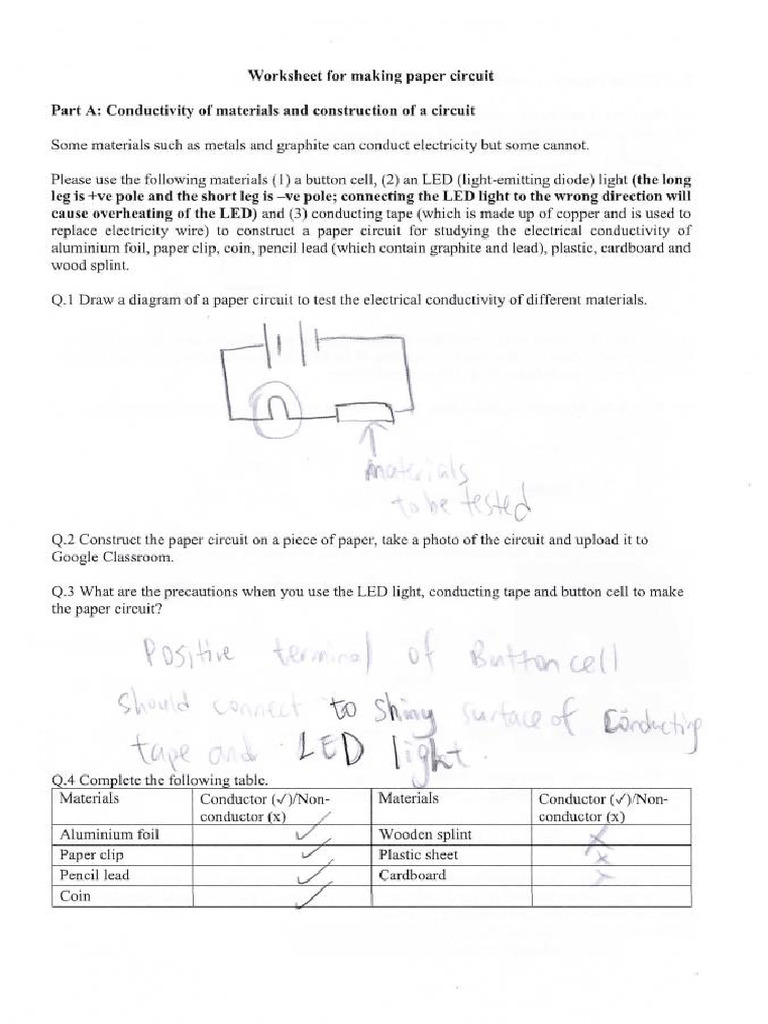 Worksheet for making paper circuit
Part A: Conductivity of materials and construction of a circuit
Some materials such as metals and graphite can conduct electricity but some cannot.
Please use the following materials (1) a button cell, (2) an LED (light-emitting diode) light (the long
leg is +ve pole and the short leg is –ve pole; connecting the LED light to the wrong direction will
cause overheating of the LED) and (3) conducting tape (which is made up of copper and is used to
replace electricity wire) to construct a paper circuit for studying the electrical conductivity of
aluminium foil, paper clip, coin, pencil lead (which contain graphite and lead), plastic, cardboard and
wood splint.
Q.1 Draw a diagram of a paper circuit to test the electrical conductivity of different materials.
materials
to be tested
Q.2 Construct the paper circuit on a piece of paper, take a photo of the circuit and upload it to
Google Classroom.
Q.3 What are the precautions when you use the LED light, conducting tape and button cell to make
the paper circuit?
Positive terminal of Button cell
should connect to shiny surface of conducting
tape and LED light.
Q.4 Complete the following table.
Materials Conductor (✓)/Non- Materials Conductor (✓)/Non-
conductor (x) conductor (x)
Aluminium foil ✓ Wooden splint x
Paper clip ✓ Plastic sheet x
Pencil lead ✓ Cardboard x
Coin ✓